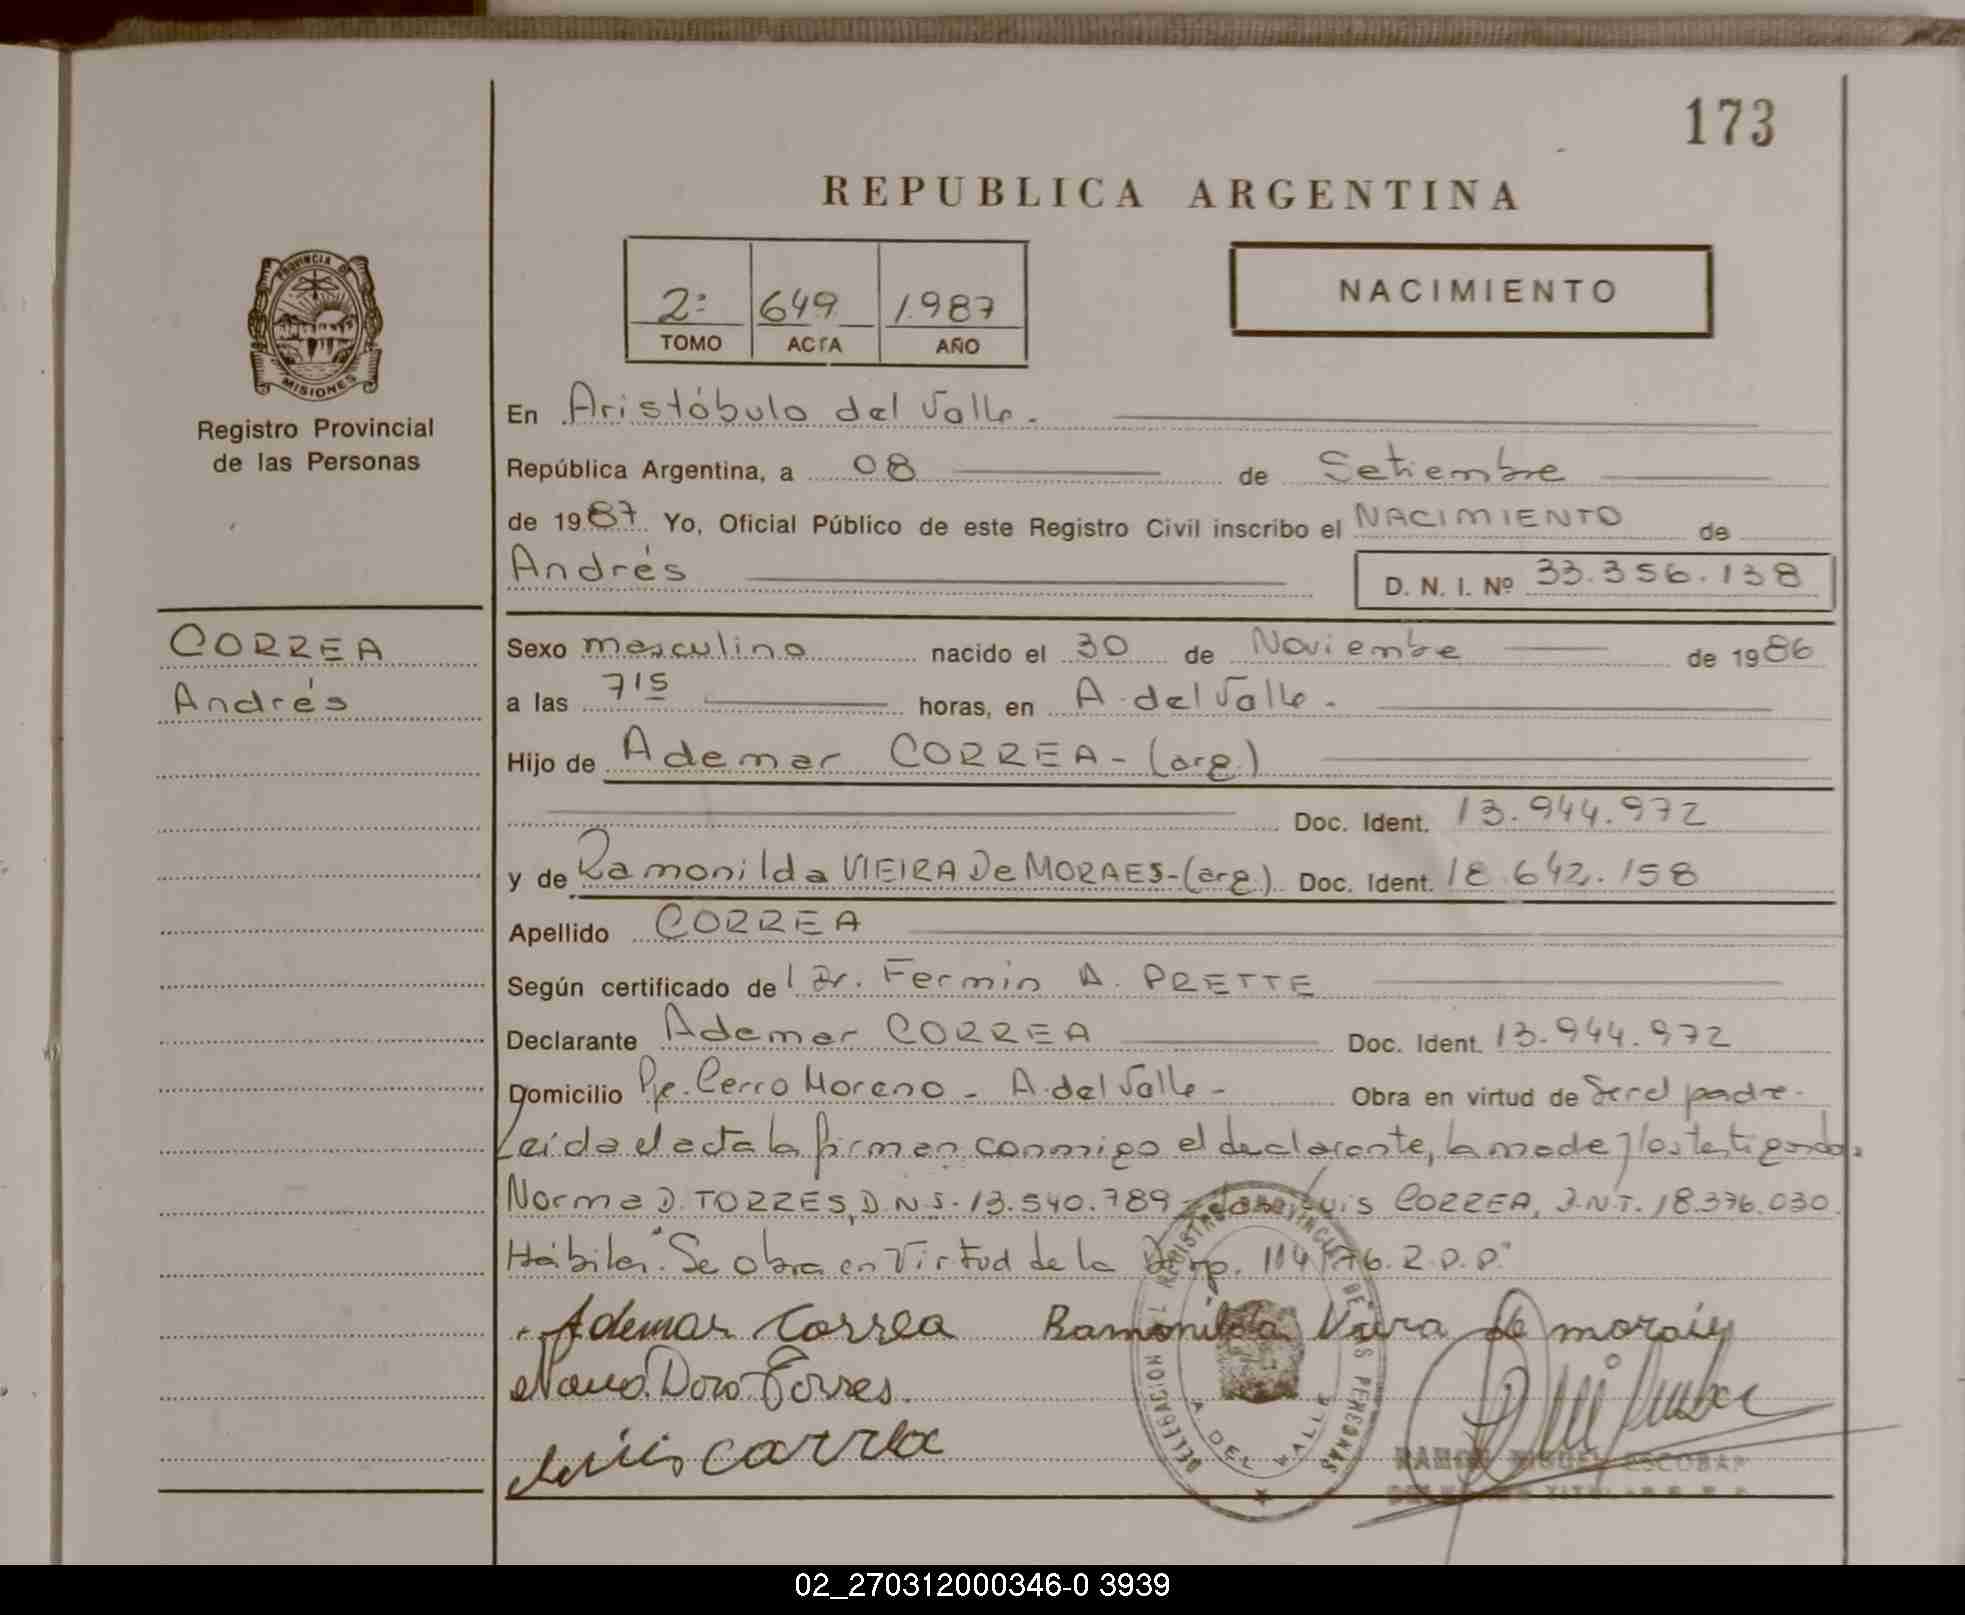 173
REPUBLICA ARGENTINA
2º 649 1.987
TOMO ACTA AÑO
NACIMIENTO
PROVINCIA DE
MISIONES
Registro Provincial
de las Personas
En Aristóbulo del Valle.
República Argentina, a 08 de Setiembre
de 1987 Yo, Oficial Público de este Registro Civil inscribo el NACIMIENTO de
Andrés D. N. I. Nº 33.356.138
CORREA
Andrés
Sexo masculino nacido el 30 de Noviembre de 1986
a las 715 horas, en A. del Valle.
Hijo de Ademar CORREA - (arg.)
Doc. Ident. 13.944.972
y de Ramonilda VIEIRA De MORAES - (arg.). Doc. Ident. 18.642.158
Apellido CORREA
Según certificado del Dr. Fermin A. PRETTE
Declarante Ademar CORREA Doc. Ident. 13.944.972
Domicilio Pje. Cerro Moreno - A. del Valle - Obra en virtud de Ser el padre.
Leída el acta la firman conmigo el declarante, la madre y los testigos
Norma D. TORRES, D.N.I. 13.540.789 Luis CORREA, D.N.I. 18.376.030
Hábiles. "Se obra en Virtud de la Disp. 114/76. R.P.P."
Ademar Correa Ramonilda Vieira de morais
Torres.
Luis correa
DELEGACION REGISTRO PROVINCIAL DE LAS PERSONAS
A. DEL VALLE
RAMON MIGUEL ESCOBAR
02_270312000346-0 3939